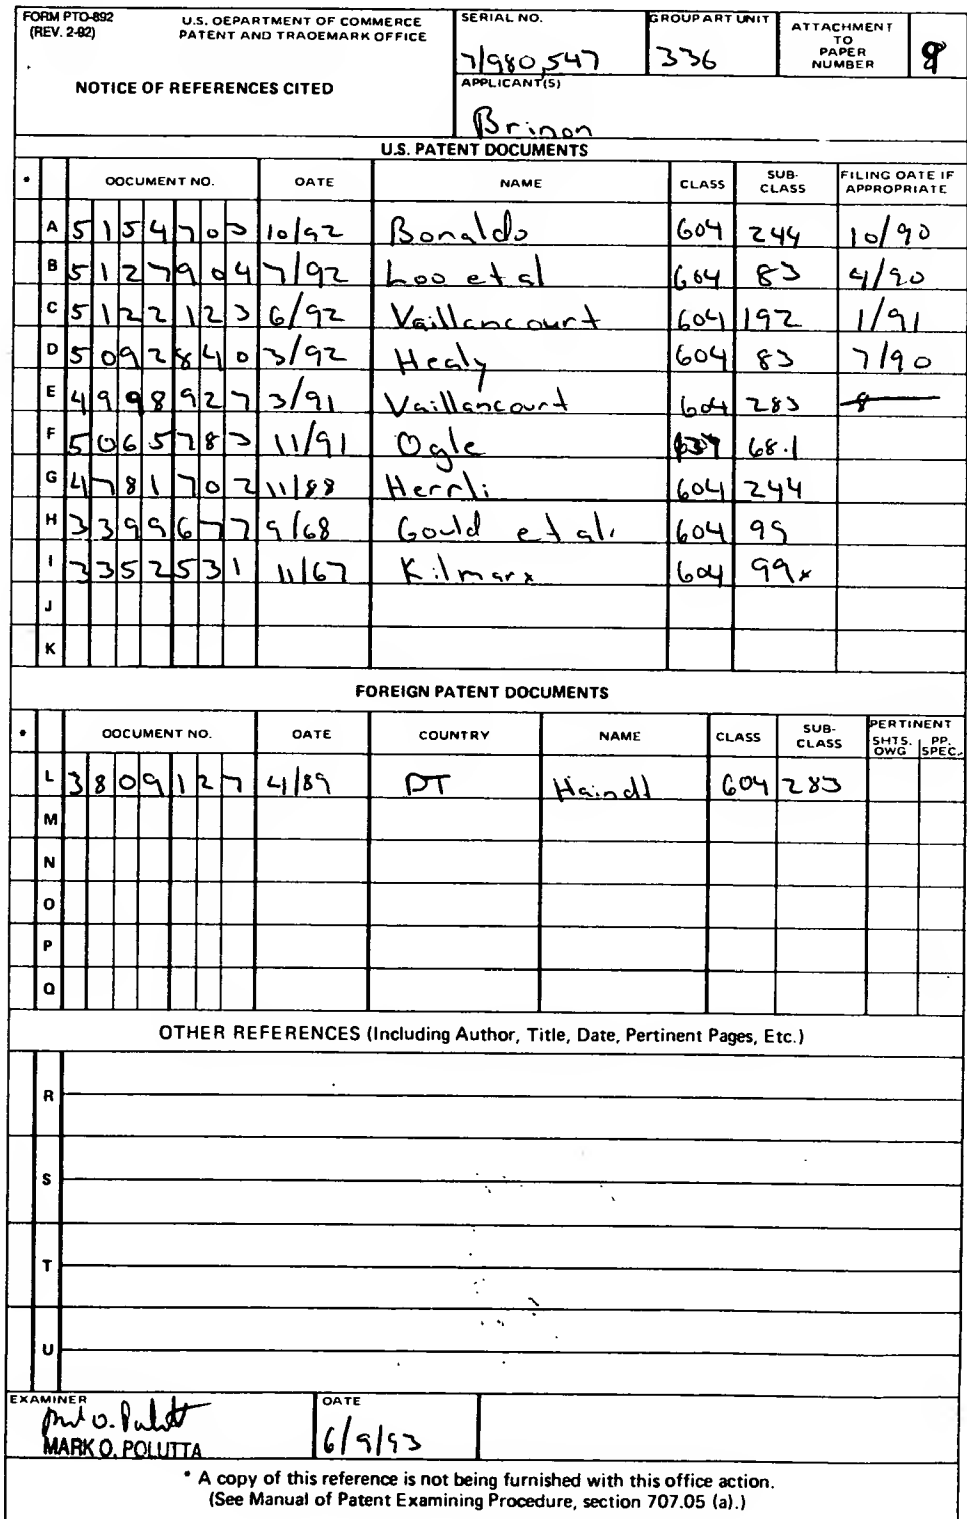 FORM PTO-892 U.S. DEPARTMENT OF COMMERCE SERIAL NO. GROUP ART UNIT ATTACHMENT
(REV. 2-92) PATENT AND TRADEMARK OFFICE 7/980,547 336 TO
PAPER
NUMBER
NOTICE OF REFERENCES CITED APPLICANT(S)
Brinon
U.S. PATENT DOCUMENTS
* DOCUMENT NO. DATE NAME CLASS SUB-CLASS FILING DATE IF APPROPRIATE
A 5154703 10/92 Bonaldo 604 244 10/90
B 5127904 7/92 Loo et al 604 83 4/90
C 5122123 6/92 Vaillancourt 604 192 1/91
D 5092840 3/92 Healy 604 83 7/90
E 4998927 3/91 Vaillancourt 604 283
F 5065783 11/91 Ogle 68.1
G 4781702 11/88 Herrli 604 244
H 3399677 9/68 Gould et al. 604 99
I 3352531 11/67 Kilmarx 604 99x
J
K
FOREIGN PATENT DOCUMENTS
* DOCUMENT NO. DATE COUNTRY NAME CLASS SUB-CLASS PERTINENT SHTS. DWG PP. SPEC.
L 3809127 4/89 DT Haindl 604 283
M
N
O
P
Q
OTHER REFERENCES (Including Author, Title, Date, Pertinent Pages, Etc.)
R
S
T
U
EXAMINER DATE
MARK O. POLUTTA 6/9/93
* A copy of this reference is not being furnished with this office action.
(See Manual of Patent Examining Procedure, section 707.05 (a).)